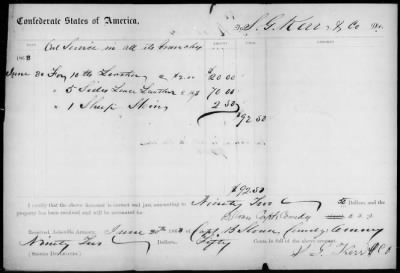 Confederate States of America,
To S. G. Kerr & Co Dr.
Ord Service in all its branches
AMOUNT
1863
June 30 For 10 lbs Leather $20.00
" 5 Sides Lace Leather 70.00
" 1 Sheep Skin 2.50
$92.50
$92.50
I certify that the above account is correct and just, amounting to Ninety Two 50 Dollars, and the
property has been received and will be accounted for.
Received, Atlanta Arsenal, June 30th 1863 of Capt. Comdg
Ninety Two Dollars, Fifty Cents, in full of the above account.
(SIGNED DUPLICATES.) S. G. Kerr & Co